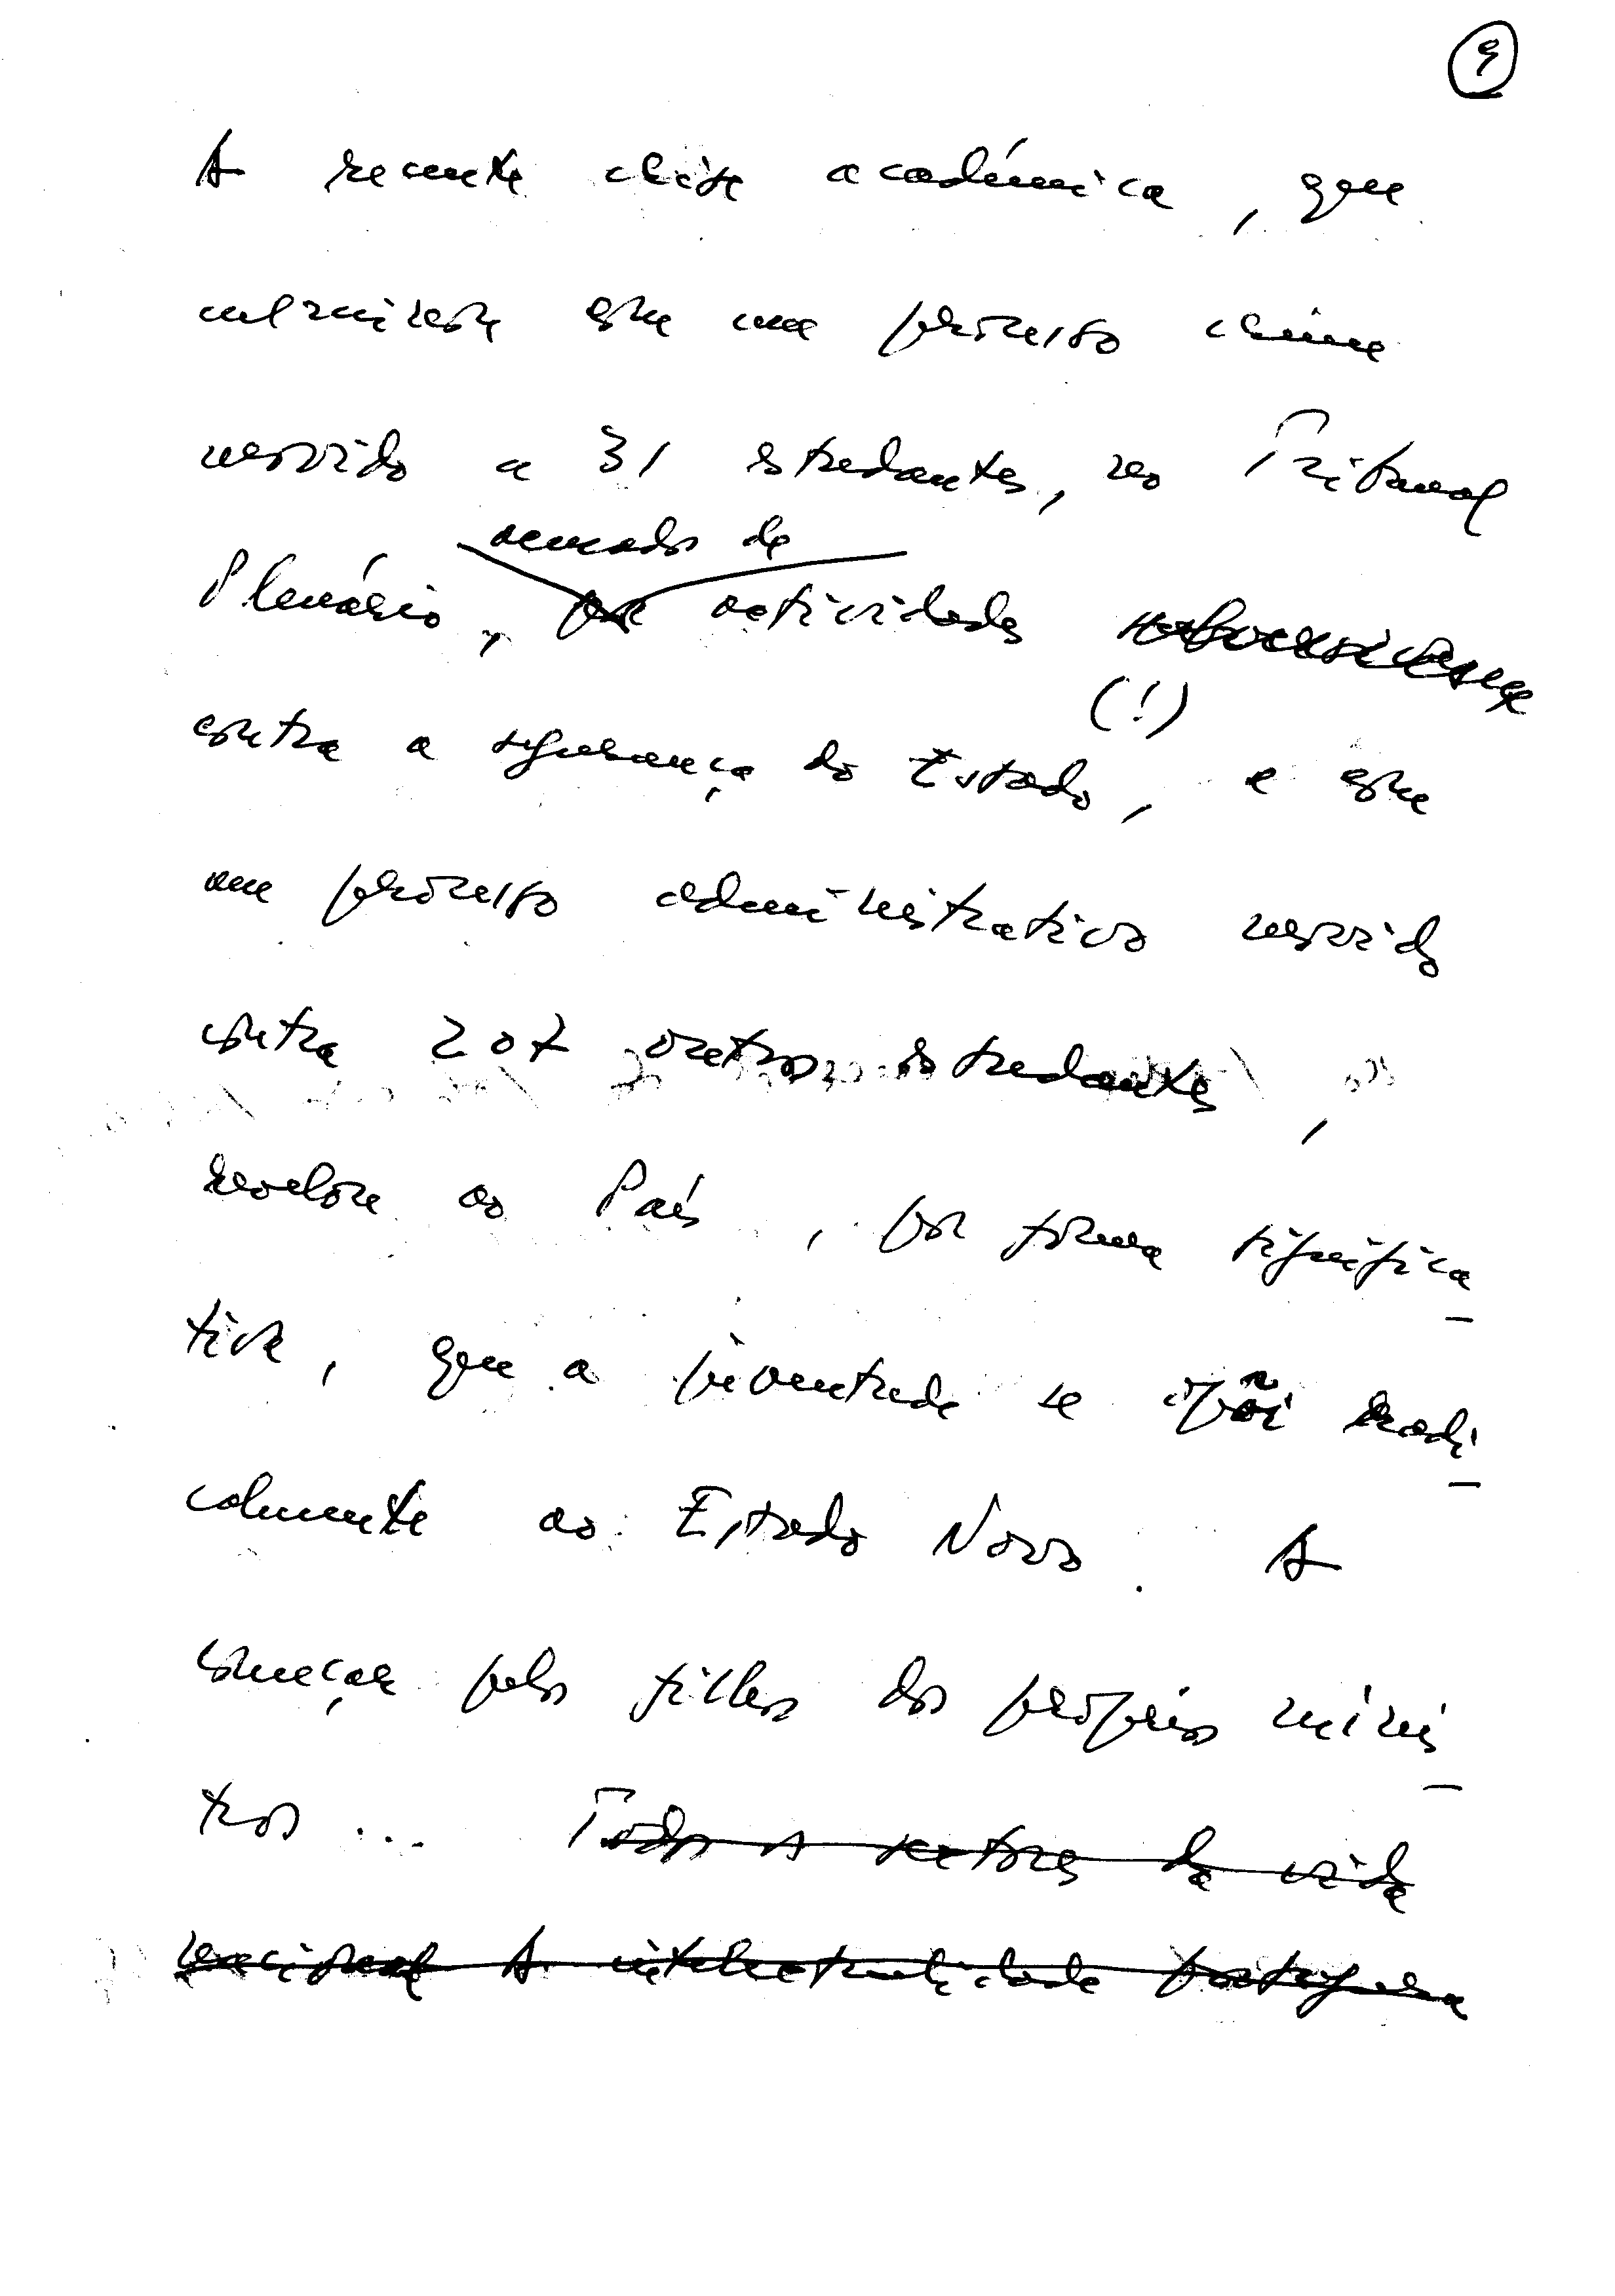 9
A recente crise académica, que
culminou com um processo crime
movido a 31 estudantes, no Tribunal
acusados de
Plenário, por actividades subversivas
(!)
contra a segurança do Estado, e com
um processo administrativo movido
contra 207 outros estudantes,
revelou ao País, por forma significa-
tiva, que a juventude se opõi radi-
calmente ao Estado Novo. A
começar pelos filhos dos próprios minis-
tros... Todos os sectores da vida
nacional A intelectualidade portuguesa